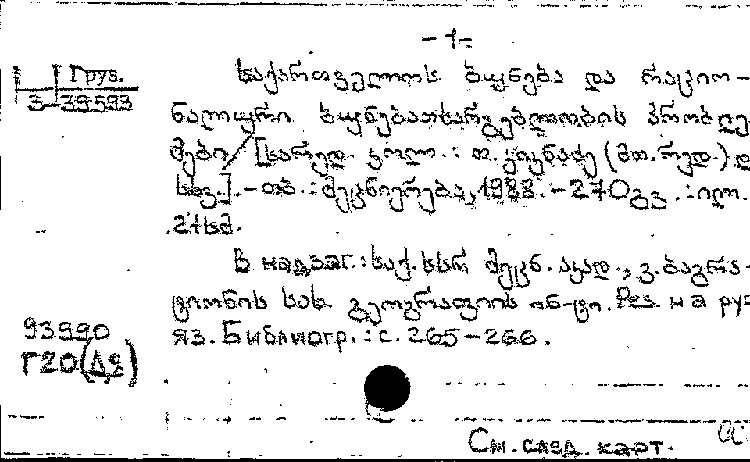 -1-
Груз.
3-39593
საქართველოს ბუნება და რაციო-
ნალური ბუნებათსარგებლობის პრობლე-
მები / [სარედ. კოლ.: თ. კიკნაძე (მთ. რედ.) დ
სხვ.]. - თბ. : მეცნიერება, 1988. - 270 გვ. : ილ.
21 სმ.
В надзаг.: საქ. სსრ მეცნ. აკად., ვ. ბაგრა-
ტიონის სახ. გეოგრაფიის ინ-ტი. Рез. на рус
яз. Библиогр.: с. 265-266.
93990
Г20(
См. след. карт.